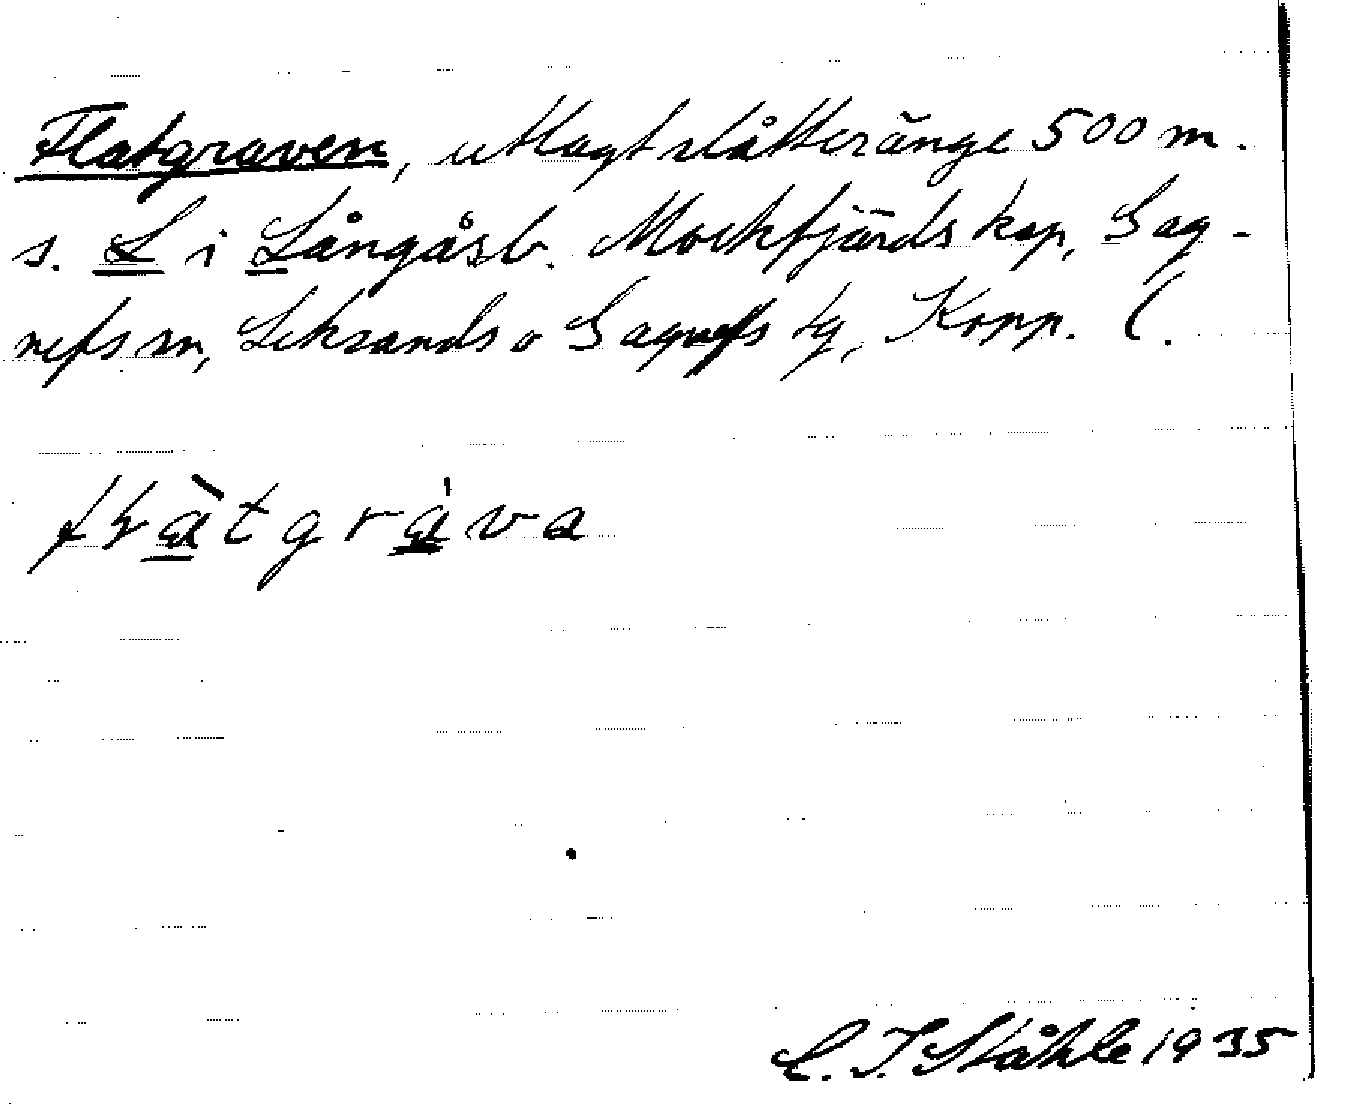 Flatgraven, utlagt slåtteränge 500 m.
s. L i Långåsb. Mockfjärds kap, Gag-
nefs sn, Leksands o Gagnefs tg, Kopp. l.
L. I. Ståhle 1935